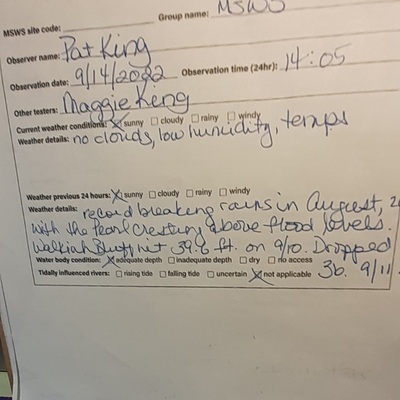 MSWS site code: Group name: MSWS
Observer name: Pat King
Observation date: 9/14/2022 Observation time (24hr): 14:05
Other testers: Maggie King
Current weather conditions: ☒ sunny ☐ cloudy ☐ rainy ☐ windy
Weather details: no clouds, low humidity, temps
Weather previous 24 hours: ☒ sunny ☐ cloudy ☐ rainy ☐ windy
Weather details: record breaking rains in August, 
with the Pearl cresting above flood levels.
Walkiah Bluff hit ft. on 9/10. Dropped
Water body condition: ☒ adequate depth ☐ inadequate depth ☐ dry ☐ no access
Tidally influenced rivers: ☐ rising tide ☐ falling tide ☐ uncertain ☒ not applicable 9/11.